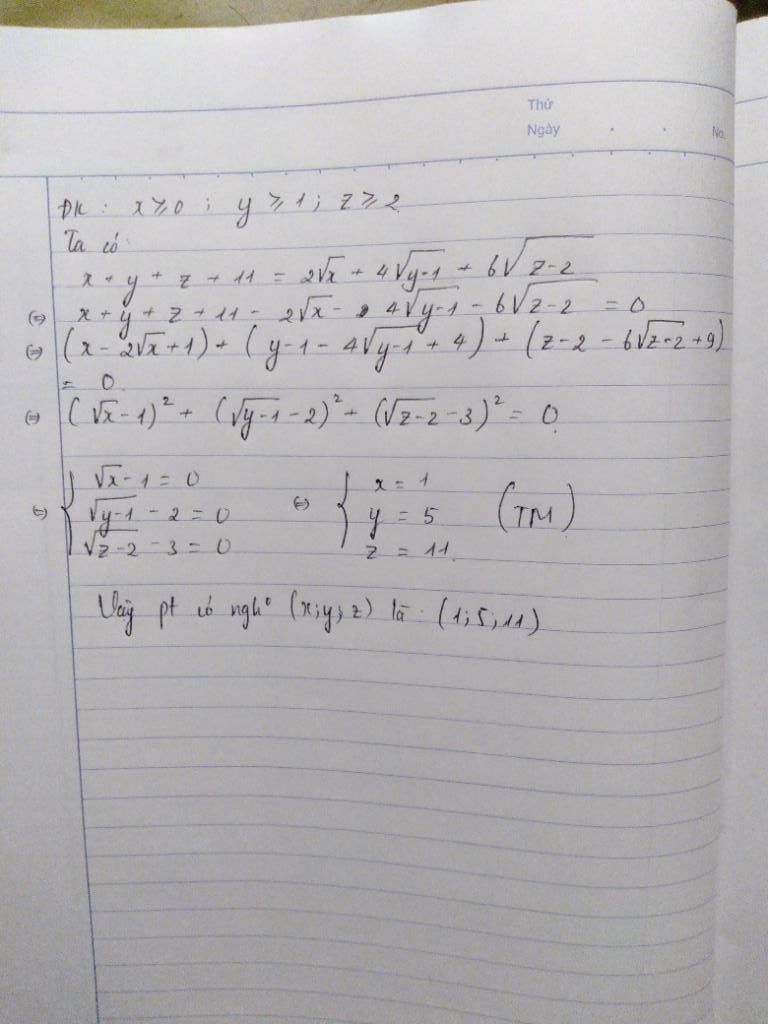 Thứ
Ngày . .
No.
ĐK : x ⩾ 0 ; y ⩾ 1 ; z ⩾ 2
Ta có:
x + y + z + 11 = 2√x + 4√(y-1) + 6√(z-2)
(=) x + y + z + 11 - 2√x - 4√(y-1) - 6√(z-2) = 0
(=) (x - 2√x + 1) + (y-1 - 4√(y-1) + 4) + (z-2 - 6√(z-2) + 9)
= 0.
(=) (√x - 1)² + (√(y-1) - 2)² + (√(z-2) - 3)² = 0
(=) { √x - 1 = 0 (=) { x = 1
√(y-1) - 2 = 0 y = 5 (TM)
√(z-2) - 3 = 0 z = 11
Vậy pt có ngh° (x;y;z) là : (1;5;11)